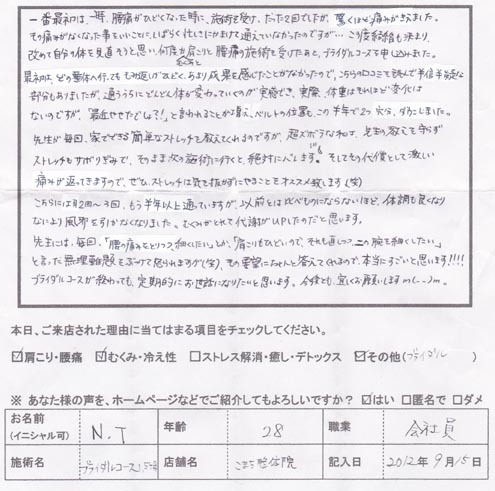 一番最初は、一昨、腰痛がひどくなった時に、施術を受け、たった2回でしたが、驚くほど痛みが消えました。
その痛みがなくなった事をいいことに、しばらく忙しさにかまけて通えていなかったのですが…この度結婚も決まり、
改めて自分の体を見直そうと思い、何度か肩こりと腰痛の施術を受けたあと、ブライダルコースを申し込みました。
最初は、どの整体へ行ってももみ返しがひどく、あまり成果を感じたことがなかったので、こちらの口コミを読んで半信半疑な
部分もありましたが、通ううちにどんどん体が変わっていくのが実感でき、実際、体重はそれほど変化は
ないのですが、「最近やせたでしょ？！」と言われることが増え、ベルトの位置も、この半年で2つ穴分、ダウンしました。
先生が毎回、家でできる簡単なストレッチを教えてくれるのですが、超ズボラな私は、先生の教えを守らず
ストレッチもサボりぎみで、そのまま次の施術に行くと、絶対にバレます。そしてその代償として激しい
痛みが返ってきますので、ぜひ、ストレッチは気を抜かずにやることをオススメ致します（笑）
こちらには月2回〜3回、もう半年以上通っていますが、以前とは比べものにならないほど、体調も良くなり
ないより風邪を引かなくなりました。むくみがとれて代謝がUPしたのだと思います。
先生には、毎回、「腰の痛みをとりつつ、細くしたい」とか、「肩こりもひどいので、それも直しつつ、二の腕を細くしたい。」
と言った無理難題をぶつけて怒られますが（笑）、その要望にちゃんと答えてくれるので、本当にすごいと思います!!!!
ブライダルコースが終わっても、定期的にお世話になりたいと思います。今後とも、宜しくお願いしますm(_ _)m
本日、ご来店された理由に当てはまる項目をチェックしてください。
☑肩こり・腰痛 ☑むくみ・冷え性 □ストレス解消・癒し・デトックス ☑その他(ブライダル)
※ あなた様の声を、ホームページなどでご紹介してもよろしいですか？ ☑はい □匿名で □ダメ
お名前 (イニシャル可) N.T 年齢 28 職業 会社員
施術名 ブライダルコース 店舗名 こまち整体院 記入日 2012年9月15日